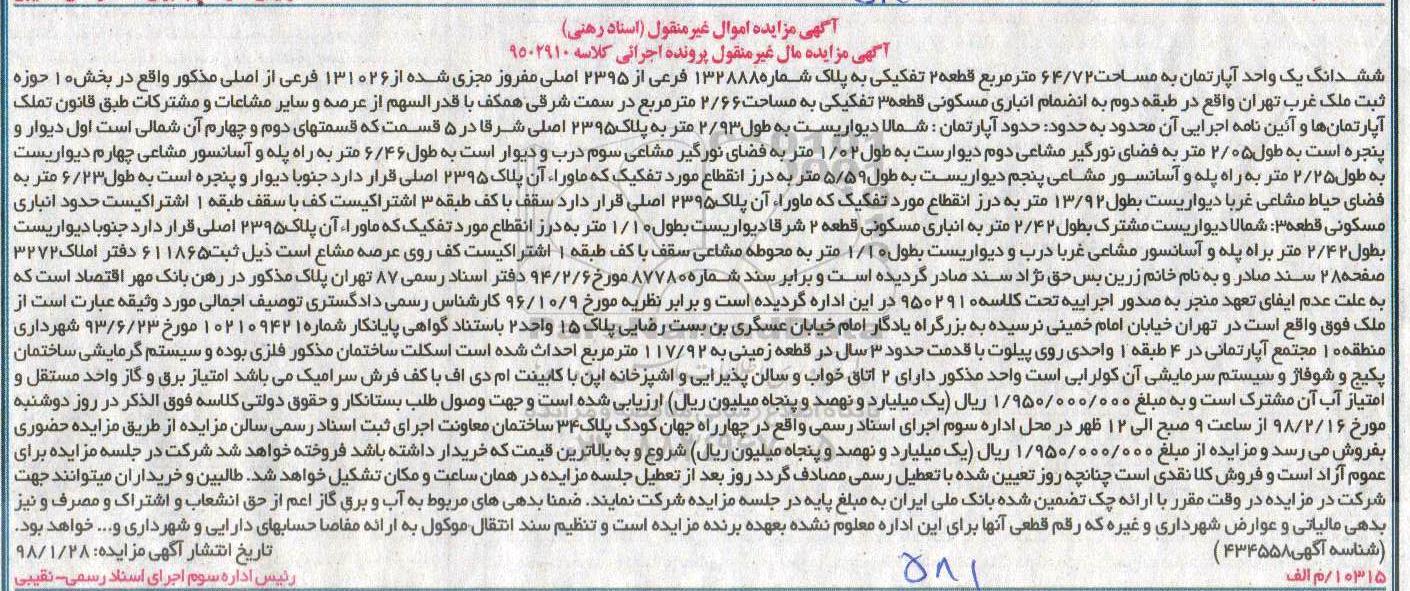 آگهی مزایده اموال غیرمنقول (اسناد رهنی)
آگهی مزایده مال غیرمنقول پرونده اجرائی کلاسه ۹۵۰۲۹۱۰
ششدانگ یک واحد آپارتمان به مساحت۶۴/۷۲ مترمربع قطعه۲ تفکیکی به پلاک شماره۱۳۲۸۸۸ فرعی از ۲۳۹۵ اصلی مفروز مجزی شده از۱۳۱۰۲۶ فرعی از اصلی مذکور واقع در بخش۱۰ حوزه
ثبت ملک غرب تهران واقع در طبقه دوم به انضمام انباری مسکونی قطعه۳ تفکیکی به مساحت۲/۶۶ مترمربع در سمت شرقی همکف با قدرالسهم از عرصه و سایر مشاعات و مشترکات طبق قانون تملک
آپارتمان‌ها و آئین نامه اجرایی آن محدود به حدود: حدود آپارتمان : شمالا دیواریست به طول۲/۹۳ متر به پلاک۲۳۹۵ اصلی شرقا در ۵ قسمت که قسمتهای دوم و چهارم آن شمالی است اول دیوار و
پنجره است به طول۲/۰۵ متر به فضای نورگیر مشاعی دوم دیوارست به طول۱/۰۲ متر به فضای نورگیر مشاعی سوم درب و دیوار است به طول۶/۴۶ متر به راه پله و آسانسور مشاعی چهارم دیواریست
به طول۲/۲۵ متر به راه پله و آسانسور مشاعی پنجم دیواریست به طول۵/۵۹ متر به درز انقطاع مورد تفکیک که ماوراء آن پلاک ۲۳۹۵ اصلی قرار دارد جنوبا دیوار و پنجره است به طول۶/۲۳ متر به
فضای حیاط مشاعی غربا دیواریست بطول۱۳/۹۲ متر به درز انقطاع مورد تفکیک که ماوراء آن پلاک۲۳۹۵ اصلی قرار دارد سقف با کف طبقه ۳ اشتراکیست کف با سقف طبقه ۱ اشتراکیست حدود انباری
مسکونی قطعه۳: شمالا دیواریست مشترک بطول۲/۴۲ متر به انباری مسکونی قطعه ۲ شرقا دیواریست بطول۱/۱۰ متر به درز انقطاع مورد تفکیک که ماوراء آن پلاک۲۳۹۵ اصلی قرار دارد جنوبا دیواریست
بطول۲/۴۲ متر براه پله و آسانسور مشاعی غربا درب و دیواریست بطول۱/۱۰ متر به محوطه مشاعی سقف با کف طبقه ۱ اشتراکیست کف روی عرصه مشاع است ذیل ثبت۶۱۱۸۶۵ دفتر املاک۳۲۷۲
صفحه۲۸ سند صادر و به نام خانم زرین بس حق نژاد سند صادر گردیده است و برابر سند شماره۸۷۷۸۰ مورخ۹۴/۲/۶ دفتر اسناد رسمی ۸۷ تهران پلاک مذکور در رهن بانک مهر اقتصاد است که
به علت عدم ایفای تعهد منجر به صدور اجراییه تحت کلاسه۹۵۰۲۹۱۰ در این اداره گردیده است و برابر نظریه مورخ ۹۶/۱۰/۹ کارشناس رسمی دادگستری توصیف اجمالی مورد وثیقه عبارت است از
ملک فوق واقع است در تهران خیابان امام خمینی نرسیده به بزرگراه یادگار امام خیابان عسگری بن بست رضایی پلاک ۱۵ واحد۲ باستناد گواهی پایانکار شماره۱۰۲۱۰۹۴۲۱ مورخ ۹۳/۶/۲۳ شهرداری
منطقه۱۰ مجتمع آپارتمانی در ۴ طبقه ۱ واحدی روی پیلوت با قدمت حدود ۳ سال در قطعه زمینی به ۱۱۷/۹۲ مترمربع احداث شده است اسکلت ساختمان مذکور فلزی بوده و سیستم گرمایشی ساختمان
پکیج و شوفاژ و سیستم سرمایشی آن کولرابی است واحد مذکور دارای ۲ اتاق خواب و سالن پذیرایی و اشپزخانه اپن با کابینت ام دی اف با کف فرش سرامیک می باشد امتیاز برق و گاز واحد مستقل و
امتیاز آب آن مشترک است و به مبلغ ۱/۹۵۰/۰۰۰/۰۰۰ ریال (یک میلیارد و نهصد و پنجاه میلیون ریال) ارزیابی شده است و جهت وصول طلب بستانکار و حقوق دولتی کلاسه فوق الذکر در روز دوشنبه
مورخ ۹۸/۲/۱۶ از ساعت ۹ صبح الی ۱۲ ظهر در محل اداره سوم اجرای اسناد رسمی واقع در چهارراه جهان کودک پلاک۳۴ ساختمان معاونت اجرای ثبت اسناد رسمی سالن مزایده از طریق مزایده حضوری
بفروش می رسد و مزایده از مبلغ ۱/۹۵۰/۰۰۰/۰۰۰ ریال (یک میلیارد و نهصد و پنجاه میلیون ریال) شروع و به بالاترین قیمت که خریدار داشته باشد فروخته خواهد شد شرکت در جلسه مزایده برای
عموم آزاد است و فروش کلا نقدی است چنانچه روز تعیین شده با تعطیل رسمی مصادف گردد روز بعد از تعطیل جلسه مزایده در همان ساعت و مکان تشکیل خواهد شد. طالبین و خریداران میتوانند جهت
شرکت در مزایده در وقت مقرر با ارائه چک تضمین شده بانک ملی ایران به مبلغ پایه در جلسه مزایده شرکت نمایند. ضمنا بدهی های مربوط به آب و برق گاز اعم از حق انشعاب و اشتراک و مصرف و نیز
بدهی مالیاتی و عوارض شهرداری و غیره که رقم قطعی آنها برای این اداره معلوم نشده بعهده برنده مزایده است و تنظیم سند انتقال موکول به ارائه مفاصا حسابهای دارایی و شهرداری و... خواهد بود.
(شناسه آگهی۴۳۴۵۵۸) تاریخ انتشار آگهی مزایده: ۹۸/۱/۲۸
۱۰۳۱۵/م الف رئیس اداره سوم اجرای اسناد رسمی- نقیبی
۵۸۱